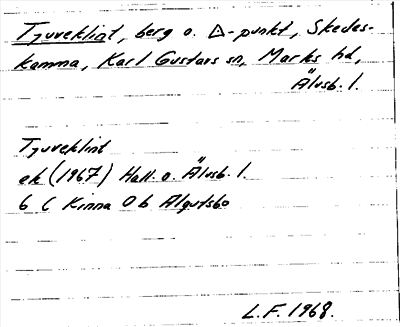 Tjuveklint, berg o. △-punkt, Skedes-
kamma, Karl Gustavs sn, Marks hd,
Älvsb. l.
Tjuveklint
ek (1967) Hall. o. Älvsb. l.
6 C Kinna 0 b Algutsbo
L.F. 1968.